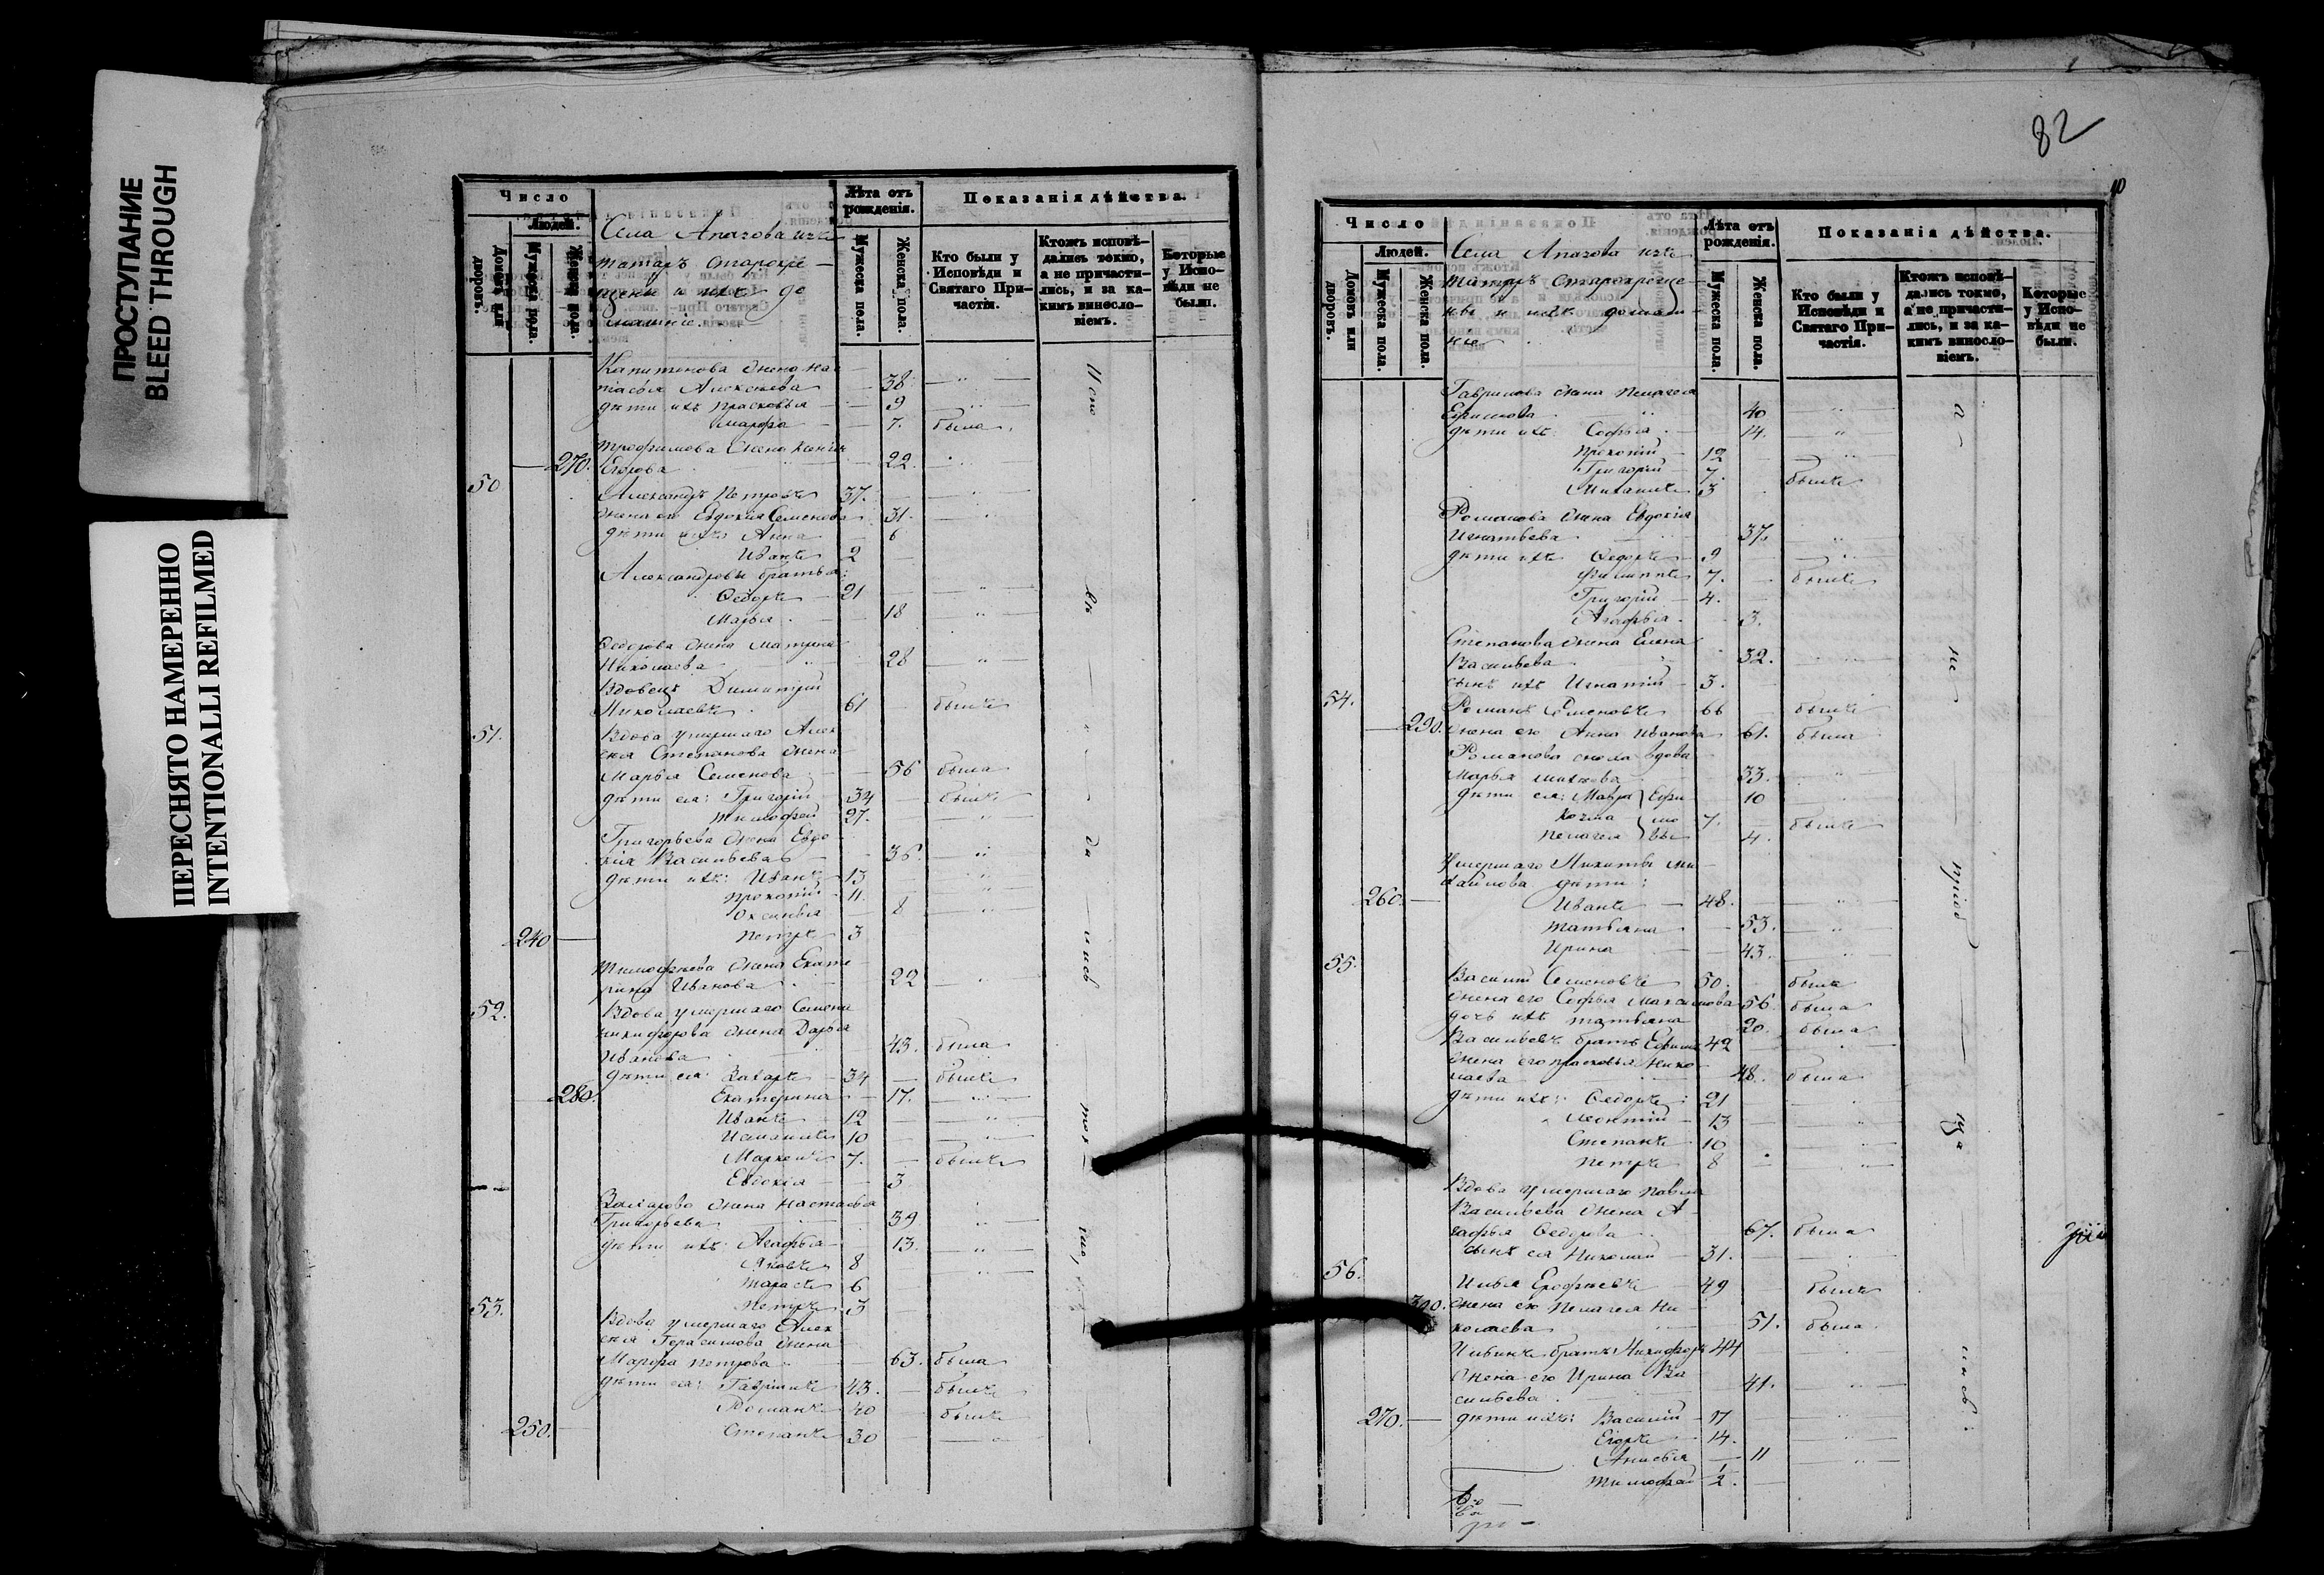 ПРОСТУПАНИЕ
BLEED THROUGH
ПЕРЕСНЯТО НАМЕРЕННО
INTENTIONALLI REFILMED
Число
Людей.
Домовъ или дворовъ.
Мужеска пола.
Женска пола.
Села Апазова изъ
татаръ старокре-
щены и ихъ до
машніе.
Лѣта отъ рожденія.
Мужеска пола.
Женска пола.
Показанія дѣйства.
Кто были у Исповѣди и Святаго Причастія.
Ктожъ исповѣдались токмо, а не причастились, и за какимъ винословіемъ.
Которые у Исповѣди не были.
Капитонова жена Нас
тасья Алексеева 38
дѣти ихъ Прасковья 9
Марфа 7. была
Трофимова жена
270. Егорова 22
50 Александръ Петровъ 37.
жена его Евдокия Семенова 31
дѣти ихъ Анна 6
Иванъ 2
Александровы братья:
Ѳедоръ 21
Марья 18
Ѳедорова жена Матрена
Николаева 28
Вдовецъ Димитрий
Николаевъ 61 былъ
51. Вдова умершаго Алек
сея Степанова жена
Марья Семенова 56 была
дѣти ея: Григорій 34 былъ
Тимофей 27.
Григорьева жена Евдо
кия Васильева 36.
дѣти ихъ: Иванъ 13
Прокопій 11.
Оксинья 8
240 Петръ 3
Тимофеева жена Екате
рина Иванова 22
52. Вдова умершаго Семена
Никифорова жена Дарья
Иванова 43. была
дѣти ея: Захаръ 34 былъ
280. Екатерина 17.
Иванъ 12
10
7. былъ
Евдокія 3
Захарова жена Настасья
Григорьева 39
дѣти ихъ: Агафья 13.
Яковъ 8
Тарасъ 6
Петръ 3
53. Вдова умершаго Алек
сея Герасимова жена
Марфа Петрова 63. была
дѣти ея: Гаврилъ 43. былъ
Романъ 40 былъ
250. Степанъ 30
Испо
вѣ
да
лись
ток
мо,
82
Число
Людей.
Домовъ или дворовъ.
Мужеска пола.
Женска пола.
Села Апазова изъ
татаръ старокреще-
ны и ихъ домаш
ніе.
Лѣта отъ рожденія.
Мужеска пола.
Женска пола.
Показанія дѣйства.
Кто были у Исповѣди и Святаго Причастія.
Ктожъ исповѣдались токмо, а не причастились, и за какимъ винословіемъ.
Которые у Исповѣди не были.
Гаврилова жена Пелагея
Ефимова 40
дѣти ихъ: Софья 14.
Прокопій 12
Григорій 7. былъ
Михаилъ 3
Романова жена Евдокія
Игнатьева 37.
дѣти ихъ Ѳедоръ 9
Филиппъ 7. былъ
Григорій 4.
Агафья 3.
Степанова жена Елена
Васильева 32.
сынъ ихъ Игнатій 3.
54. Романъ Семеновъ 66 былъ
290. жена его Анна Иванова 61. была
Романова сноха вдова
Марья 33.
дѣти ея: Мавра 10
Козма 7. былъ
Пелагея 4.
Умершаго Никиты Ми
хайлова дѣти:
260. Иванъ 48.
Татьяна 53.
Ирина 43.
55. Василій Семеновъ 50. былъ
жена его Софья Максимова 56. была
дочь ихъ Татьяна 20. была
Васильевъ братъ Ефимъ 42
жена его Прасковья Нико
лаева 48. была
дѣти ихъ: Ѳедоръ 21
Леонтій 13
Степанъ 10
Петръ 8
Вдова умершаго Павла
Васильева жена А-
гафья Ѳедорова 67. была
сынъ ея Николай 31.
56. Илья Ерофеевъ 49 былъ
300. жена его Пелагея Ни
колаева 51. была
Ильинъ братъ Никифоръ 44
жена его Ирина Ва
сильева 41.
270. дѣти ихъ: Василій 17
Егоръ 14.
Анисья 11
Тимофей 1/2.
а
не
пріоб
ща
лись.